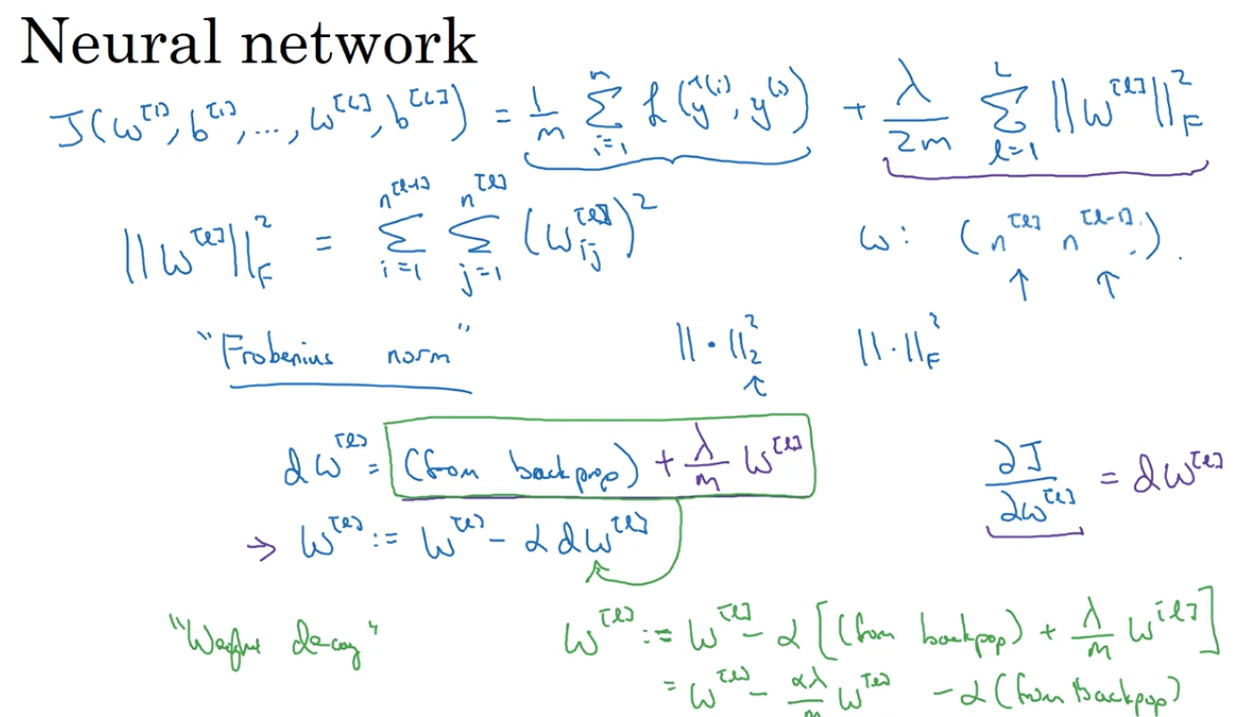 Neural network
J(w^[1], b^[1], ..., w^[L], b^[L]) = 1/m Σ_{i=1}^{n} L(ŷ^(i), y^(i)) + λ/2m Σ_{l=1}^{L} ||w^[l]||_F^2
||w^[l]||_F^2 = Σ_{i=1}^{n^[l-1]} Σ_{j=1}^{n^[l]} (w_ij^[l])^2 w: (n^[l] n^[l-1]).
"Frobenius norm" ||·||_2^2 ||·||_F^2
dw^[l] = (from backprop) + λ/m w^[l] ∂J/∂w^[l] = dw^[l]
→ w^[l] := w^[l] - α dw^[l]
"Weight decay" w^[l] := w^[l] - α[(from backpop) + λ/m w^[l]]
= w^[l] - αλ/m w^[l] - α(from backpop)